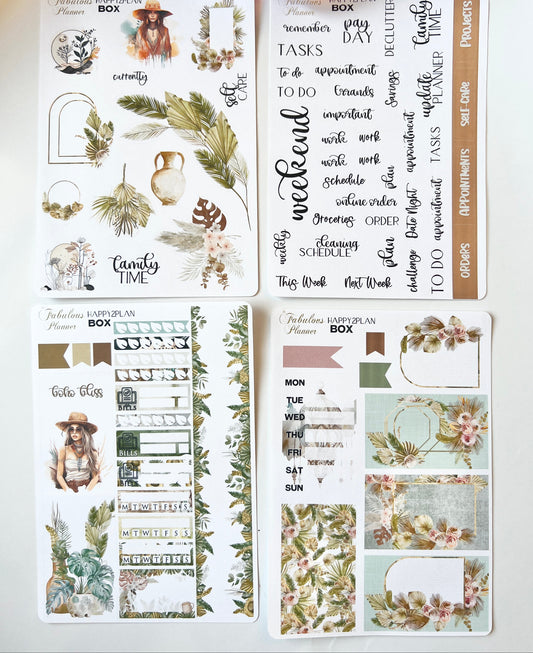 Fabulous
Planner
HAPPY2PLAN
BOX
currently
self
CARE
family
TIME
HAPPY2PLAN
BOX
remember
pay
DAY
DECLUTTER
family
TIME
TASKS
to do
appointment
TO DO
Errands
Savings
update
PLANNER
important
weekend
work
work
work
work
schedule
plan
appointment
TASKS
online order
Groceries
ORDER
Date Night
appointment
weekly
cleaning
SCHEDULE
plan
challenge
TO DO
This Week
Next Week
PROJECTS
SELF-CARE
APPOINTMENTS
ORDERS
Fabulous
Planner
HAPPY2PLAN
BOX
boho bliss
BILLS
BILLS
M T W T F S S
M T W T F S S
M T W T F S S
Fabulous
Planner
HAPPY2PLAN
BOX
MON
TUE
WED
THU
FRI
SAT
SUN